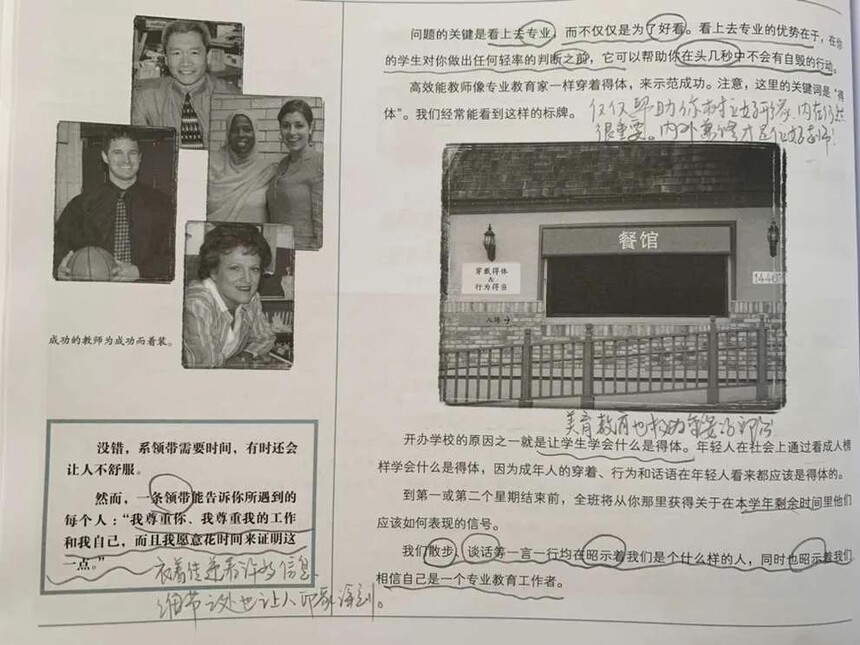 成功的教师为成功而着装。
没错，系领带需要时间，有时还会
让人不舒服。
然而，一条领带能告诉你所遇到的
每个人：“我尊重你、我尊重我的工作
和我自己，而且我愿意花时间来证明这
一点。”
衣着传递着许多信息，
细节之处也让人印象深刻。
问题的关键是看上去专业，而不仅仅是为了好看。看上去专业的优势在于，在你
的学生对你做出任何轻率的判断之前，它可以帮助你在头几秒中不会有自毁的行动。
高效能教师像专业教育家一样穿着得体，来示范成功。注意，这里的关键词是“得
体”。我们经常能看到这样的标牌。
仅仅帮助你树立好形象，内在仍然
很重要。内外兼修才是位好老师！
餐馆
穿戴得体
&
行为得当
入口
1440
美育教育也
开办学校的原因之一就是让学生学会什么是得体。年轻人在社会上通过看成人榜
样学会什么是得体，因为成年人的穿着、行为和话语在年轻人看来都应该是得体的。
到第一或第二个星期结束前，全班将从你那里获得关于在本学年剩余时间里他们
应该如何表现的信号。
我们散步、谈话等一言一行均在昭示着我们是个什么样的人，同时也昭示着我们
相信自己是一个专业教育工作者。